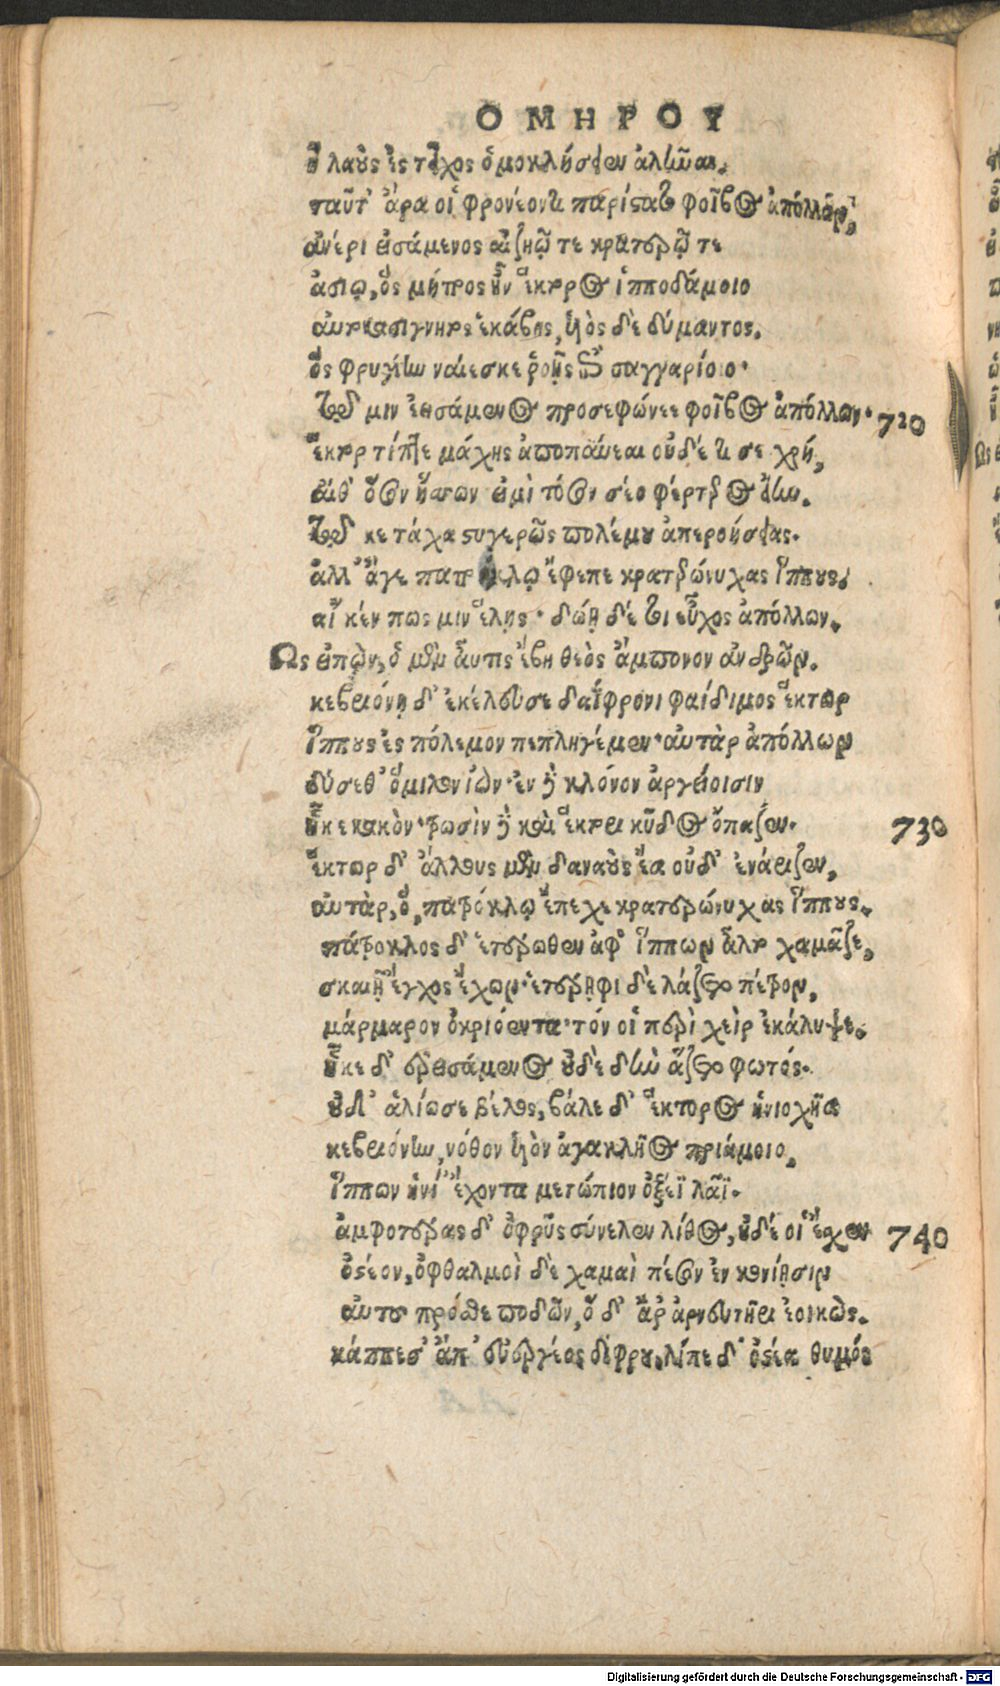 ΟΜΗΡΟΥ
ἢ λαοὺς ἐς τεῖχος ὁμοκλήσειεν ἀλῶναι.
ταῦτ' ἄρα οἱ φρονέοντι παρίστατο φοῖβος ἀπόλλων,
ἀνέρι εἰσάμενος αἰζηῷ τε κρατερῷ τε
ἀσίῳ, ὃς μήτρος ἦν ἕκτορος ἱπποδάμοιο
αὐτοκασίγνητος ἑκάβης, υἱὸς δὲ δύμαντος.
ὃς φρυγίῃ ναίεσκε ῥοῇς ἔπι σαγγαρίοιο·
τῷ μιν ἐεισάμενος προσεφώνεε φοῖβος ἀπόλλων· 720
ἕκτορ τίπτε μάχης ἀποπαύεαι οὐδέ τι σε χρή,
αἴθ' ὅσον ἥσσων εἰμὶ τόσον σέο φέρτερος εἴην.
τῷ κε τάχα στυγερῶς πολέμου ἀπερωήσειας.
ἀλλ' ἄγε πατρόκλῳ ἔφεπε κρατερώνυχας ἵππους,
αἴ κέν πως μιν ἕλῃς· δώῃ δέ τοι εὖχος ἀπόλλων.
Ως εἰπὼν, ὁ μὲν αὖτις ἔβη θεὸς ἂμ πόνον ἀνδρῶν.
κεβριόνῃ δ' ἐκέλευσε δαΐφρονι φαίδιμος ἕκτωρ
ἵππους ἐς πόλεμον πεπληγέμεν· αὐτὰρ ἀπόλλων
δύσεθ' ὅμιλον ἰὼν· ἐν δὲ κλόνον ἀργείοισιν
ἧκε κακὸν· τρωσὶν δὲ καὶ ἕκτορι κῦδος ὄπαζεν. 730
ἕκτωρ δ' ἄλλους μὲν δαναοὺς ἔα οὐδ' ἐνάριζεν,
αὐτὰρ, ὃ, πατρόκλῳ ἔπεχε κρατερώνυχας ἵππους.
πάτροκλος δ' ἑτέρωθεν ἀφ' ἵππων ἆλτο χαμᾶζε,
σκαιῇ ἔγχος ἔχων· ἑτέρηφι δὲ λάζετο πέτρον,
μάρμαρον ὀκριόεντα· τόν οἱ περὶ χεὶρ ἐκάλυψε.
ἧκε δ' ἐρεισάμενος οὐδὲ δὴν ἅζετο φωτός.
οὐδ' ἁλίωσε βέλος, βάλε δ' ἕκτορος ἡνιοχῆα
κεβριόνην, νόθον υἱὸν ἀγακλῆος πριάμοιο,
ἵππων ἡνί' ἔχοντα μετώπιον ὀξέϊ λᾶϊ.
ἀμφοτέρας δ' ὀφρῦς σύνελεν λίθος, οὐδέ οἱ ἔσχεν 740
ὀστέον, ὀφθαλμοὶ δὲ χαμαὶ πέσον ἐν κονίῃσιν
αὐτοῦ πρόσθε ποδῶν, ὃ δ' ἄρ' ἀρνευτῆρι ἐοικὼς.
κάππεσ' ἀπ' εὐεργέος δίφρου, λίπε δ' ὀστέα θυμός
Digitalisierung gefördert durch die Deutsche Forschungsgemeinschaft - DFG